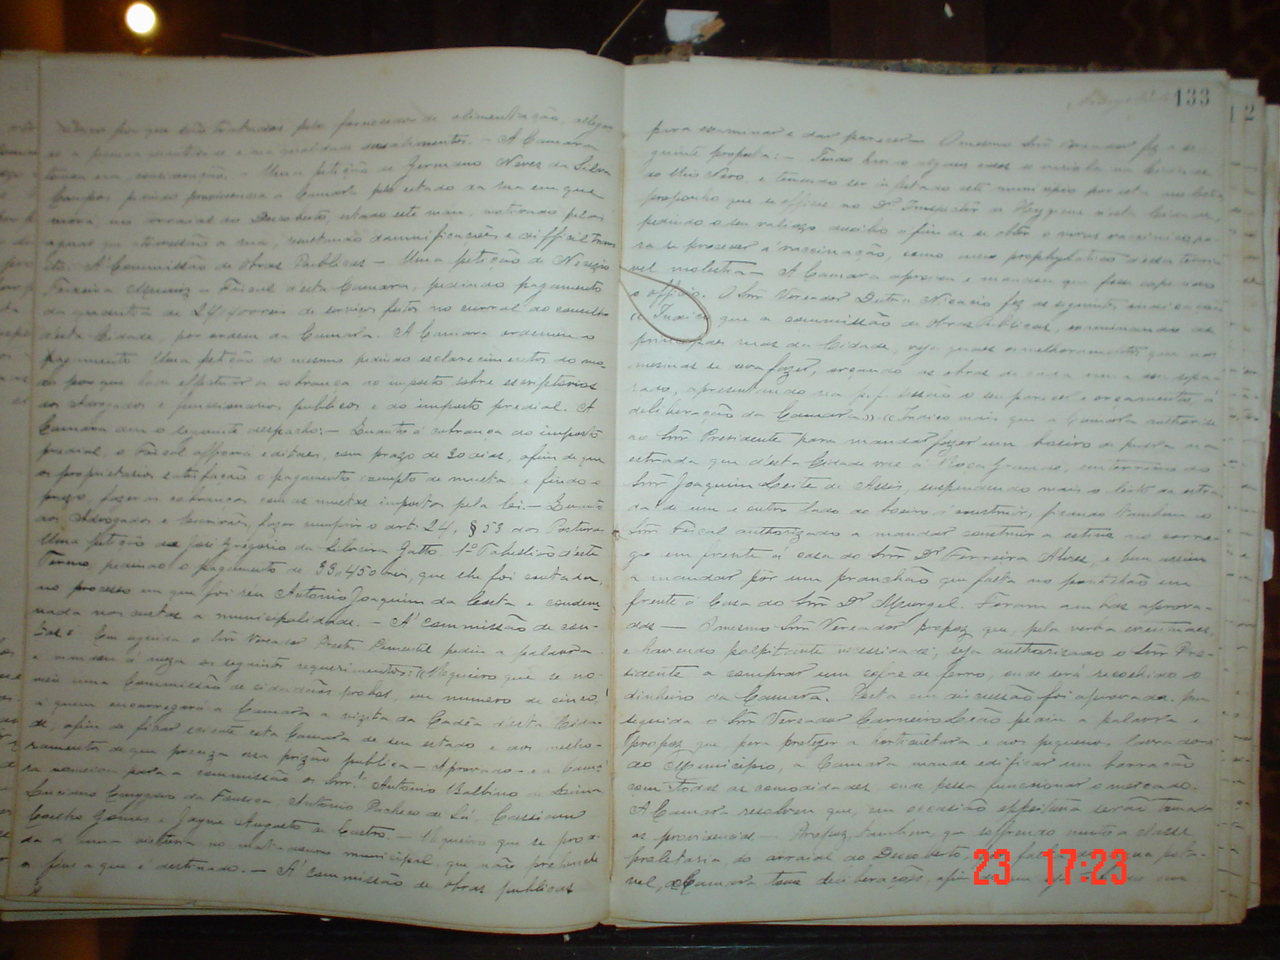 porque são tratados pelo fornecedor de alimentação, allegan
se a pouca quantidade e má qualidade dos alimentos. — A Camara
tomou em consideração. — Uma petição de Germano Neves da Silva
Campos pedindo providencia a Camara pelo estado da rua em que
mora, no arraial do Descoberto, estado este mau, motivado pelas
aguas que atravessão a rua, damnificações e difficil transi
to. A' Commissão de Obras Publicas — Uma petição de
Ferreira — Fiscal d'esta Camara, pedindo pagamento
da quantia de de serviços feitos no curral do conselho
d'esta Cidade, por ordem da Camara. A Camara ordenou o
pagamento. Uma petição do mesmo pedindo esclarecimentos do mo-
do por que hade effectuar a cobrança do imposto sobre escriptorios
dos Advogados e funccionarios publicos e do imposto predial. A
Camara deu o seguinte despacho: — Quanto á cobrança do imposto
predial, o Fiscal affixará editaes, com praso de 30 dias, afim de que
os proprietarios satisfação o pagamento exempto de multa e findo o
praso, fazer as cobranças com as multas impostas pela lei. — Quanto
aos Advogados e fazer cumprir o art. 24, § 53 das Posturas
Uma petição de José Gregorio da Silveira Gatto 1º Tabellião d'este
Termo, pedindo o pagamento de 33,450 reis, que lhe foi contados,
no processo em que foi réu Antonio Joaquim da Costa e condem
nada nas custas a municipalidade. — A' commissão de con-
tas. Em seguida o Snr Vereador Pimentel pedio a palavra
e mandou á meza os seguintes requerimentos: "Requeiro que se no-
meie uma Commissão de cidadãos probos, em numero de cinco,
a quem encarregará a Camara a vizita da Cadêa d'esta Cida-
de, afim de ficar sciente esta Camara de seu estado e dos melho-
ramentos de que preciza essa prizão publica — Aprovado — e a Cama-
ra nomeiou para a commissão os Snrs. Antonio Balbino
Luciano da Fonseca, Antonio Pacheco de Sá, Cassiano
Coelho Gomes e Jayme Augusto de Castro. — Requeiro que se proce-
da a uma vistoria no matadouro municipal, que não preenche
o fim a que é destinado. — A' commissão de obras publicas
133
para examinar e dar parecer — O mesmo Snr Vereador fez a se-
guinte proposta: — Tendo havido alguns casos de variola na Cidade
do Rio Novo e temendo ser infestado este municipio por esta molestia
proponho que se officie ao Dr. Inspector de Hygiene n'esta Cidade,
pedindo o seu valioso auxilio afim de se obter o virus vaccinico pa-
ra se proceder á vaccinação, como meio prophylatico d'essa terri-
vel molestia — A Camara aprovou e mandou que fosse expedido
o officio. O Snr Vereador Dutra Nicacio fez as seguintes indicações
"Indico que a commissão de Obras Publicas, examinando as
principaes ruas da Cidade, veja quaes os melhoramentos que nas
mesmas se deva fazer, orçando as obras de cada uma em sepa-
rado, apresentando na p.f. sessão o seu parecer e orçamento á
deliberação da Camara". "Indico mais que a Camara authorise
ao Snr Presidente para mandar fazer um boeiro de pedra na
estrada que d'esta Cidade vae á Roça Grande, em terreno do
Snr Joaquim Leite de Assis, suspendendo mais o leito da estra-
da de um e outro lado do boeiro á construir, ficando tambem o
Snr Fiscal authorizado a mandar construir a estiva no corre-
go em frente á casa do Snr Dr Ferreira Alves, e bem assim
a mandar pôr um pranchão que falta no pontilhão em
frente á Casa do Snr Dr Gurgel. Foram ambas aprova-
das — O mesmo Snr Vereador propoz que, pela verba eventuaes,
e havendo palpitante necessidade, seja authorizado o Snr Pre-
sidente a comprar um cofre de ferro, onde será recolhido o
dinheiro da Camara. Posta em discussão foi aprovada. Em
seguida o Snr Vereador Carneiro Leão pedio a palavra e
propoz que, para proteger a horticultura e aos pequenos lavradores
do Municipio, a Camara mande edificar um barracão
com todas as comodidades, onde possa funccionar o mercado.
A Camara resolveu que, em occasião opportuna serão dadas
as providencias — Propoz tambem, que soffrendo muito a classe
proletaria do arraial do Descoberto, pela falta de agua pota-
vel, a Camara tome deliberação, afim de
23 17:23